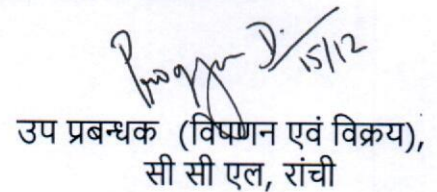 15/12
उप प्रबन्धक (विपणन एवं विक्रय),
सी सी एल, रांची